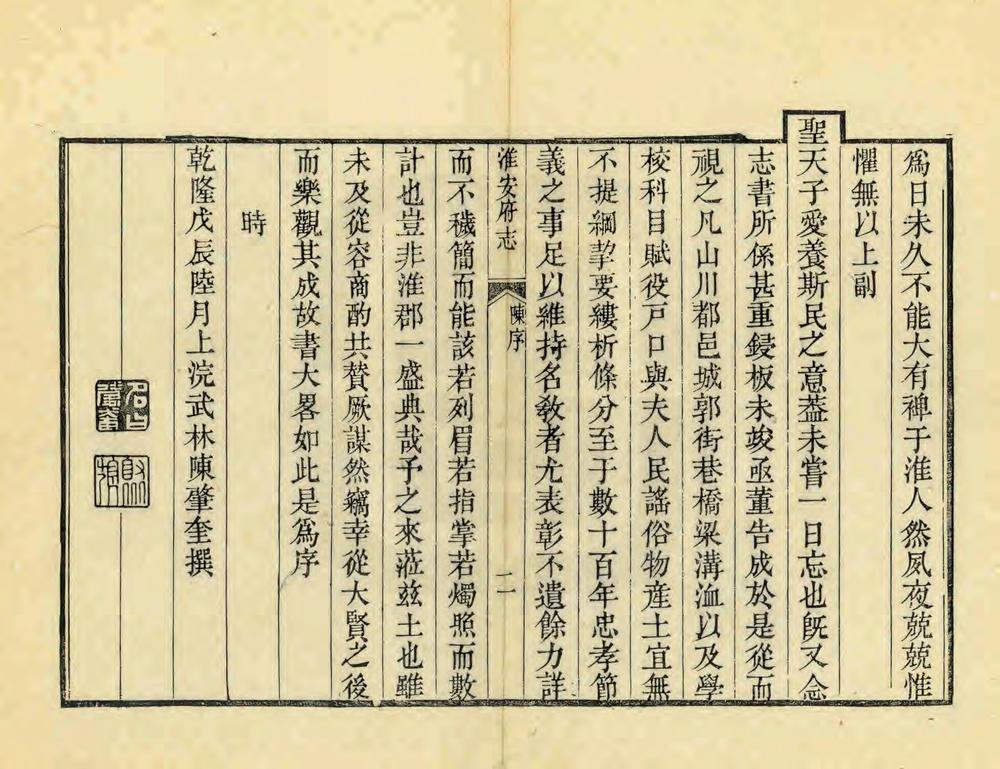 爲日未久不能大有禆于淮人然夙夜兢兢惟
懼無以上副
聖天子愛養斯民之意葢未嘗一日忘也旣又念
志書所係甚重鋟板未竣亟董告成於是從而
覛之凡山川都邑城郭街巷橋梁溝洫以及學
校科目賦役戸口與夫人民謠俗物産土宜無
不提綱挈要縷析條分至于數十百年忠孝節
義之事足以維持名敎者尤表彰不遺餘力詳
淮安府志
陳序
二
而不穢簡而能該若列眉若指掌若燭照而數
計也豈非淮郡一盛典哉予之來蒞兹土也雖
未及從容商酌共贊厥謀然竊幸從大賢之後
而樂觀其成故書大畧如此是爲序
時
乾隆戊辰陸月上浣武林陳肇奎撰